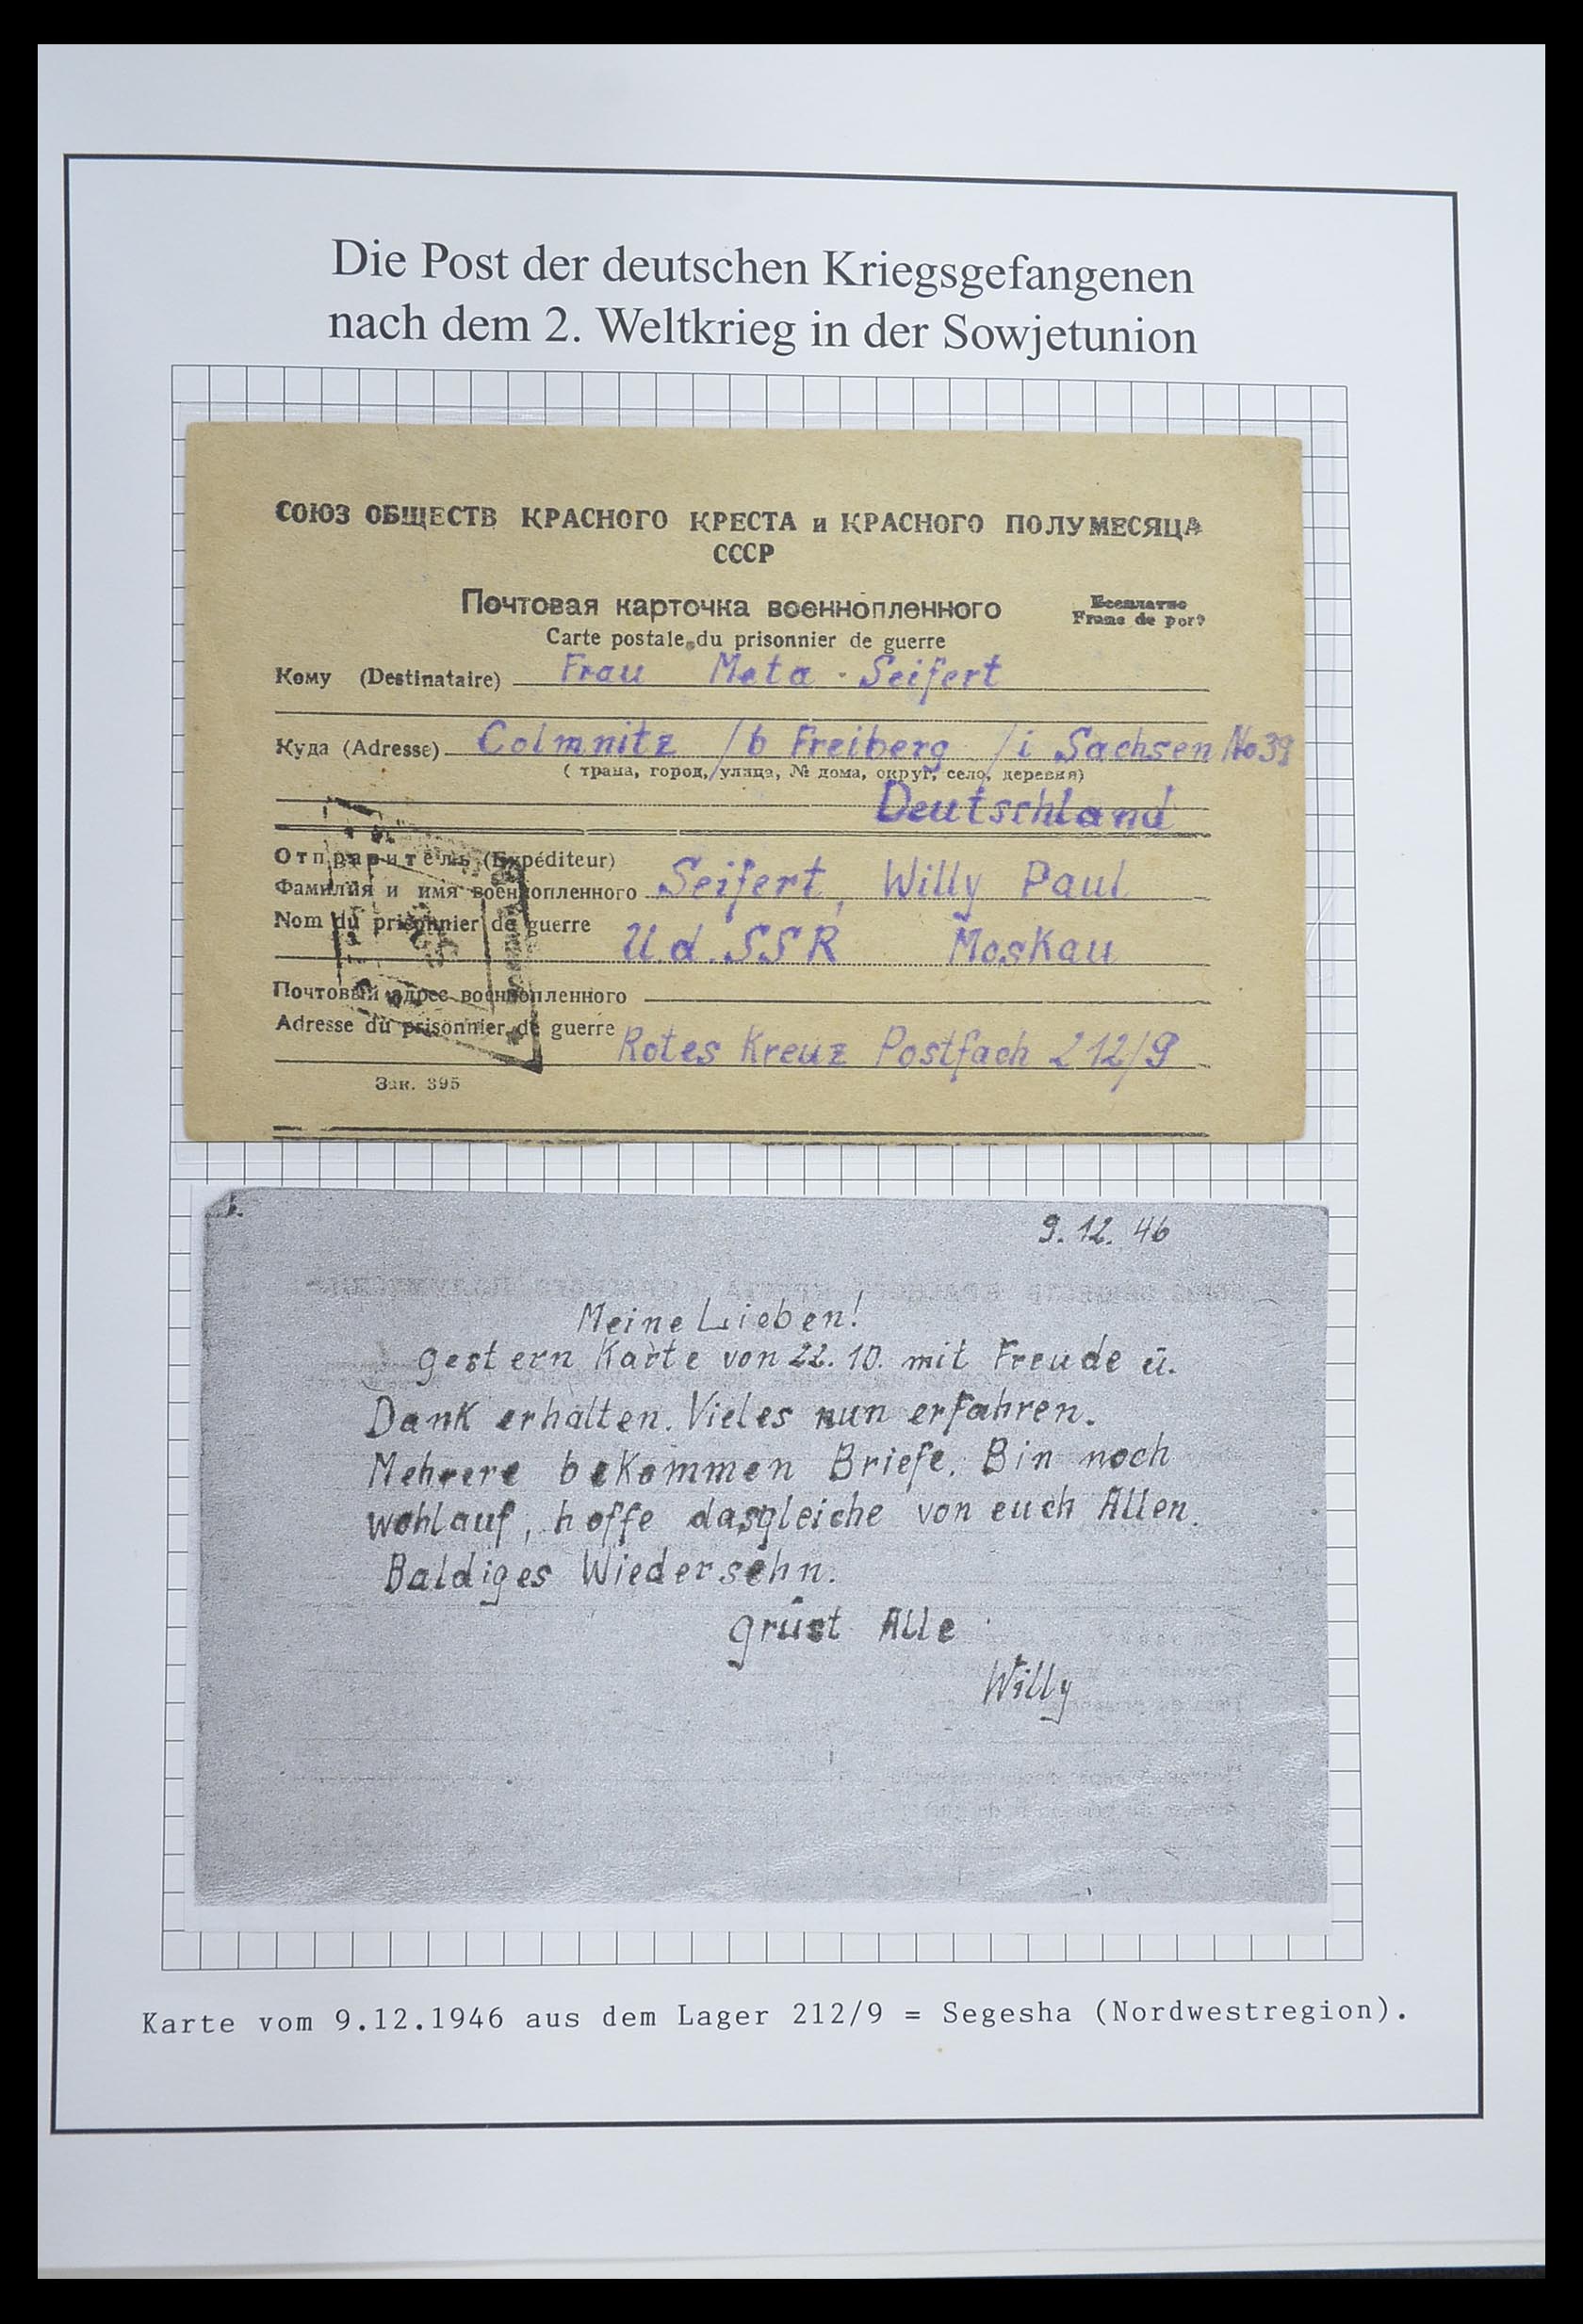 Die Post der deutschen Kriegsgefangenen
nach dem 2. Weltkrieg in der Sowjetunion
СОЮЗ ОБЩЕСТВ КРАСНОГО КРЕСТА и КРАСНОГО ПОЛУМЕСЯЦА
СССР
Почтовая карточка военнопленного
Бесплатно
Franc de port
Carte postale du prisonnier de guerre
Кому (Destinataire) Frau Meta Seifert
Куда (Adresse) Colmnitz /b Freiberg /i Sachsen No 39
( трана, город, улица, № дома, округ, село, деревня)
Deutschland
Отправитель (Expéditeur)
Фамилия и имя военнопленного Seifert, Willy Paul
Nom du prisonnier de guerre
U.d.SSR Moskau
Почтовый адрес военнопленного
Adresse du prisonnier de guerre Rotes Kreuz Postfach 212/9
Зак. 395
9.12.46
Meine Lieben!
gestern Karte von 22.10. mit Freude u.
Dank erhalten. Vieles nun erfahren.
Mehrere bekommen Briefe. Bin noch
wohlauf, hoffe dasgleiche von euch Allen.
Baldiges Wiedersehn.
grüst Alle
Willy
Karte vom 9.12.1946 aus dem Lager 212/9 = Segesha (Nordwestregion).